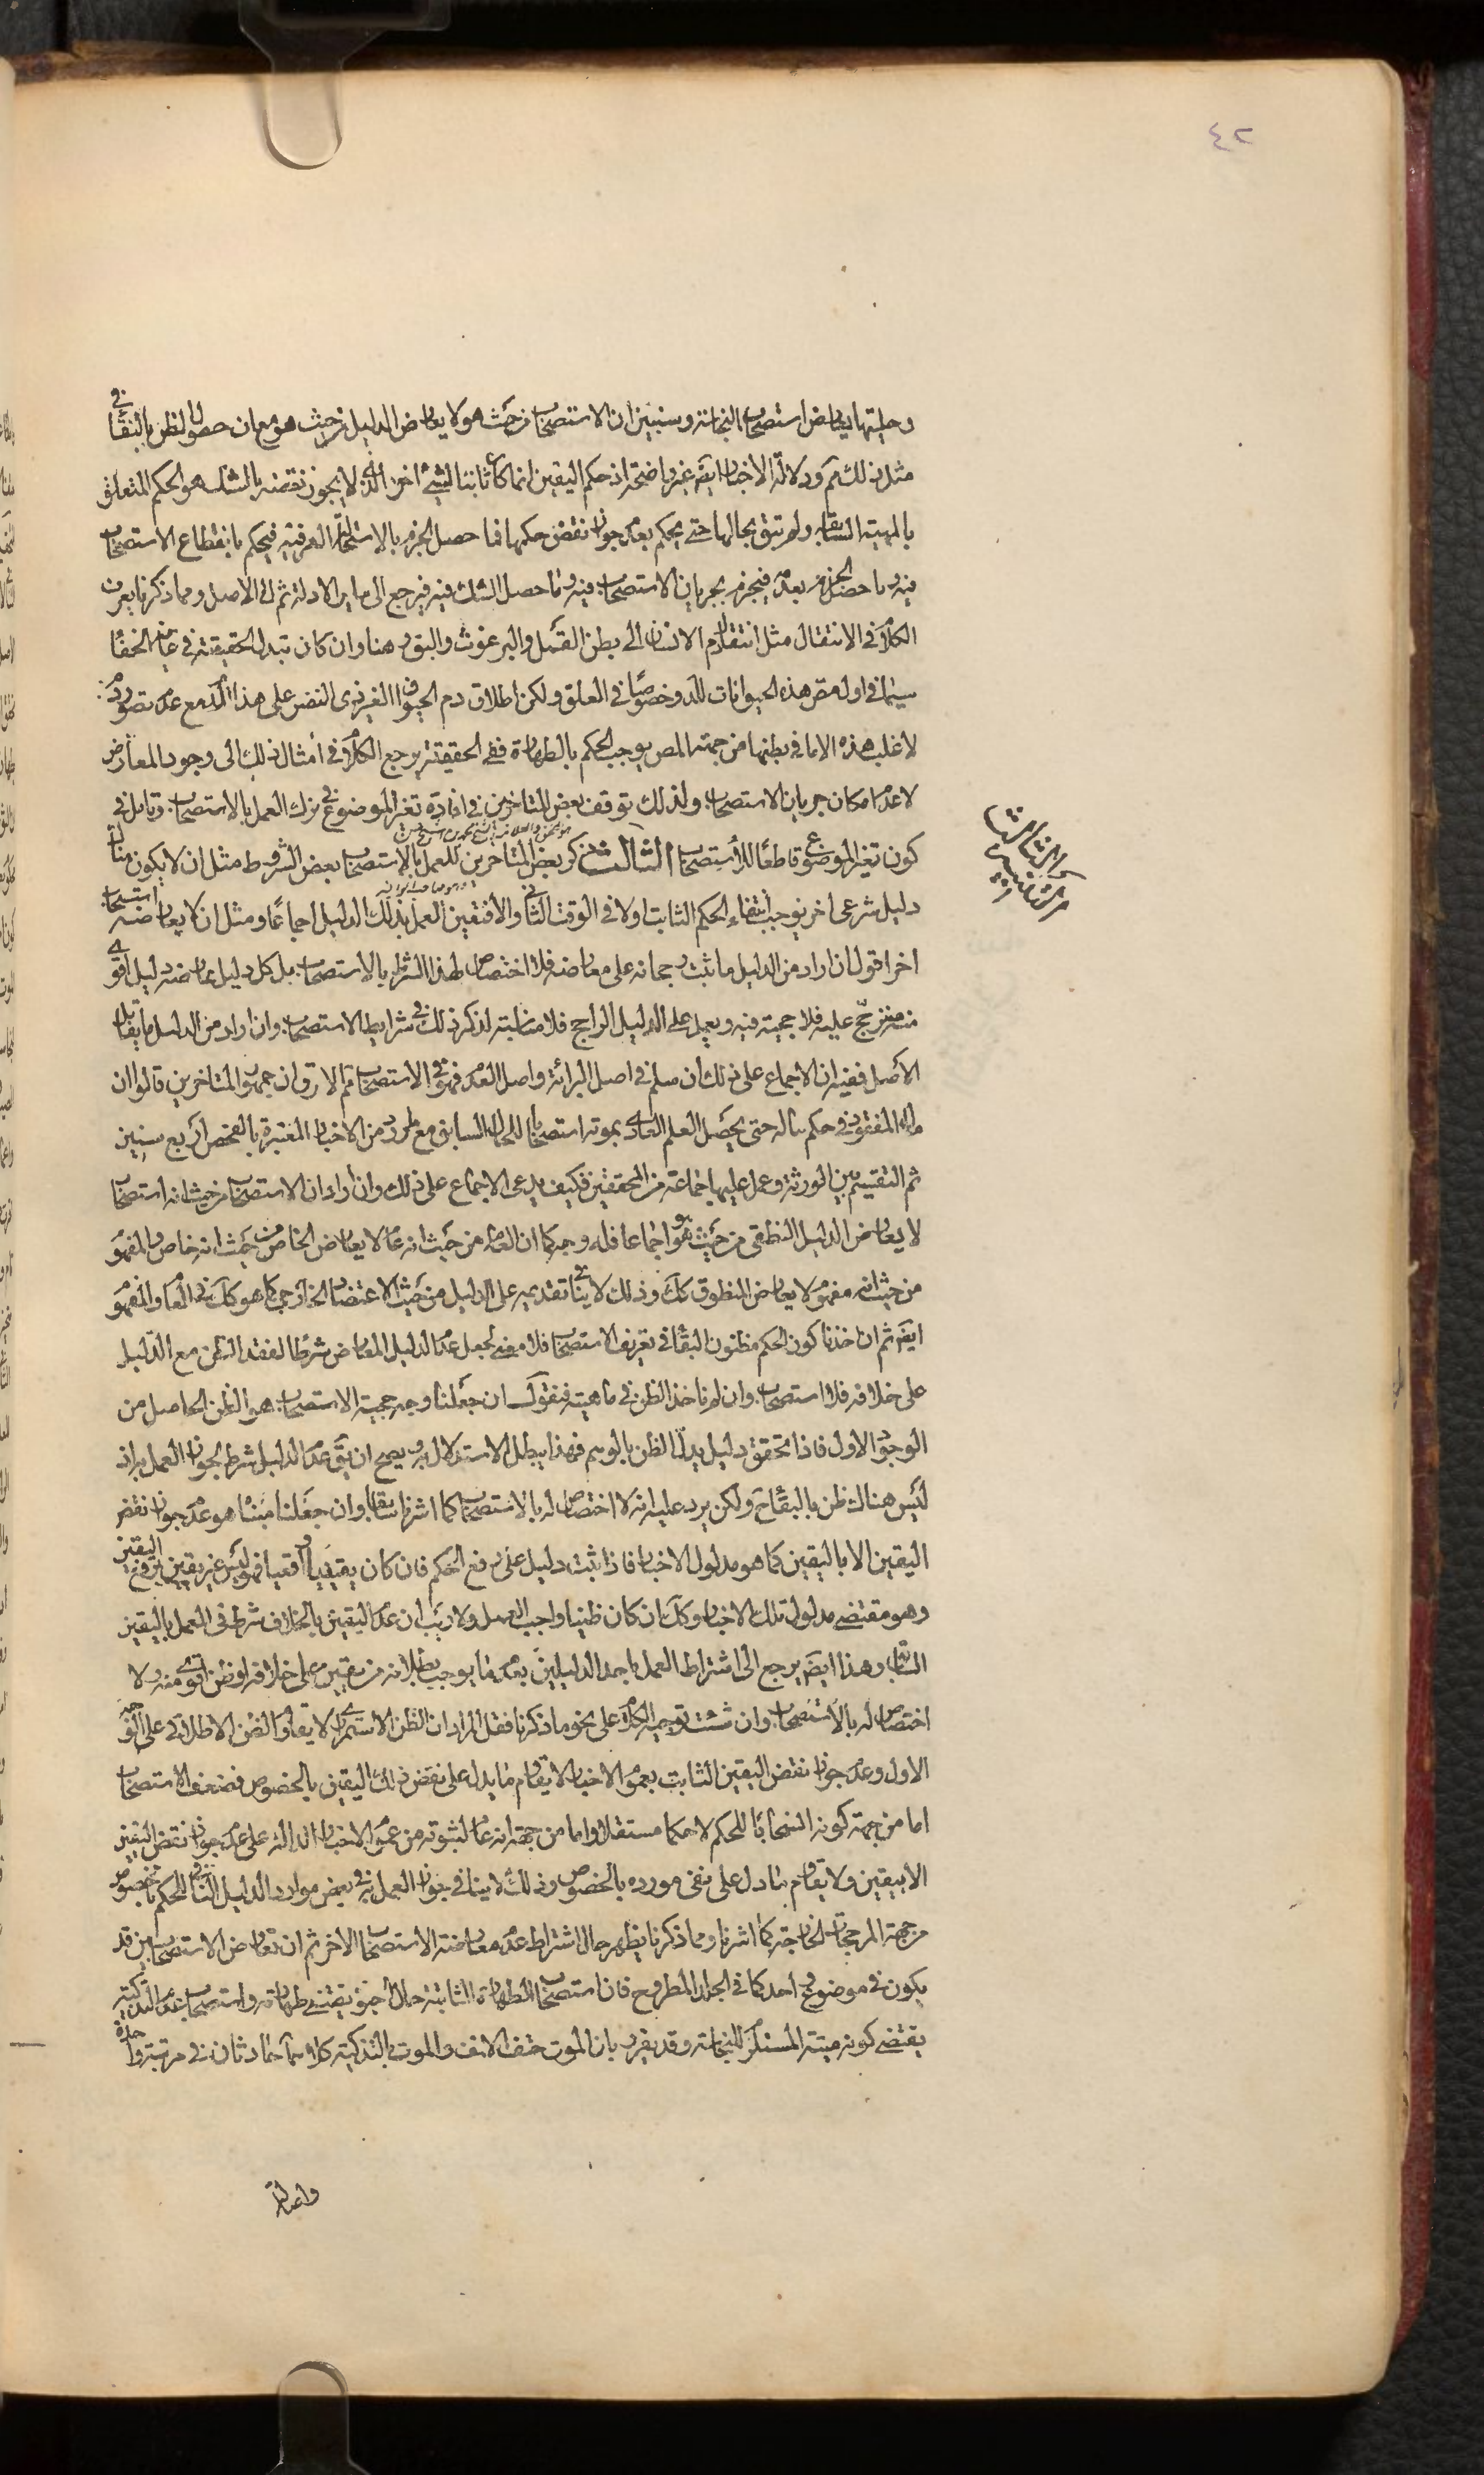 ٤٢
وحليتها يعارض استصحاب النجاسة وسنبين ان الاستصحاب من حيث هو لا يعارض الدليل من حيث هو مع ان حصول الظن بالبقاء في
مثل ذلك مم ودلالة الاخبار ايضا غير واضحة اذ حكم اليقين انما كان ثابتا لشيء اخر الذي لا يجوز نقضه بالشك هو الحكم المتعلق
بالمهية السابقة ولم تبق بحالها حتى يحكم بعدم جواز نقض حكمها فما حصل الجزم بالاستحالة العرفية فيحكم بانقطاع الاستصحاب
فيه وما حصل الجزم بعدمه فيجزم بجريان الاستصحاب فيه وما حصل الشك فيه فيرجع الى ساير الادلة ثم الى الاصل ومما ذكرنا يعرف
الكلام في الانتقال مثل انتقال دم الانسان الى بطن القمل والبرغوث والبق وهنا وان كان تبدل الحقيقة في غاية الخفاء
سيما في اول مص هذه الحيوانات للدم وخصوصا في العلق ولكن اطلاق دم الحيوان الغير ذي النفس على هذا الدم مع عدم تصور دم
لاغلب هذه الا ما في بطنها من جهة المص يوجب الحكم بالطهارة ففي الحقيقة يرجع الكلام في امثال ذلك الى وجود المعارض
لا عدم امكان جريان الاستصحاب ولذلك توقف بعض المتاخرين في افادة تغير الموضوع في ترك العمل بالاستصحاب وتامل في
كون تغير الموضوع قاطعا للاستصحاب الثالث ذكر بعض المتاخرين للعمل بالاستصحاب بعض الشروط مثل ان لا يكون هناك
دليل شرعي اخر يوجب انتفاء الحكم الثابت اولا في الوقت الثاني والا فتعين العمل بذلك الدليل اجماعا ومثل ان لا يعارضه استصحاب
اخر اقول ان اراد من الدليل ما ثبت رجحانه على معارضه فلا اختصاص لهذا الشرط بالاستصحاب بل كل دليل عارضه دليل اقوى
منه مترجح عليه فلا حجية فيه ويعمل على الدليل الراجح فلا مناسبة لذكر ذلك في شرايط الاستصحاب وان اراد من الدليل ما يقابل
الاصل ففيه ان الاجماع على ذلك ان سلم في اصل البرائة واصل العدم فهو في الاستصحاب مم الا ترى ان جمهور المتاخرين قالوا ان
مال المفقود في حكم ماله حتى يحصل العلم العادي بموته استصحابا للحال السابق مع ما ورد من الاخبار المعتبرة بالفحص اربع سنين
ثم التقسيم بين الورثة وعمل عليها جماعة من المحققين فكيف يدعى الاجماع على ذلك وان اراد ان الاستصحاب من حيث انه استصحاب
لا يعارض الدليل النطقي من حيث هو هو اجماعا فله وجه كما ان العام من حيث انه عام لا يعارض الخاص من حيث انه خاص والمفهوم
من حيث انه مفهوم لا يعارض المنطوق كك وذلك لا ينافي تقديمه على الدليل من حيث الاعتضاد الخارجي كما هو كك في العام والمفهوم
ايضا ثم ان اخذنا كون الحكم مظنون البقاء في تعريف الاستصحاب فلا معنى لجعل عدم الدليل المعارض شرطا لفقد الظن مع الدليل
على خلافه فلا استصحاب وان لم ناخذ الظن في ماهيته فنقول ان جعلنا وجه حجية الاستصحاب هو الظن الحاصل من
الوجود الاول فاذا تحقق دليل يبدل الظن بالوهم فهذا يبطل الاستدلال به ويصح ان يق عدم الدليل شرط لجواز العمل به اذ
ليس هناك ظن بالبقاء ح ولكن يرد عليه انه لا اختصاص له بالاستصحاب كما اشرنا سابقا وان جعلنا مبناه هو عدم جواز نقض
اليقين الا باليقين كما هو مدلول الاخبار فاذا ثبت دليل على رفع الحكم فان كان يقينيا واقعيا فهو ليس غير يقين يرفع اليقين
وهو مقتضى مدلول تلك الاخبار وكك ان كان ظنيا واجب العمل ولا ريب ان عدم اليقين بالخلاف شرط في العمل باليقين
السابق وهذا ايضا يرجع الى اشتراط العمل باحد الدليلين بعدم ما يوجب بطلانه من يقين على خلافه او ظن اقوى منه ولا
اختصاص له بالاستصحاب وان شئت توجيه الكلام على نحو ما ذكرنا فقل المراد ان الظن الاستمراري لا يقاوم الظن الاطلاقي على الوجه
الاول وعدم جواز نقض اليقين الثابت بعموم الاخبار لا يقاوم ما يدل على نقض ذلك اليقين بالخصوص فضعف الاستصحاب
اما من جهة كونه انسحابا للحكم لا حكما مستقلا واما من جهة انه عام لثبوته من عموم الاخبار الدالة على عدم جواز نقض اليقين
الا بيقين ولا يقاوم ما دل على نفي مورده بالخصوص وذلك لا ينافي جواز العمل به في بعض موارد الدليل النافي للحكم بالخصوص
من جهة المرجحات الخارجة كما اشرنا ومما ذكرنا يظهر حال اشتراط عدم معارضة الاستصحاب الاخر ثم ان تعارض الاستصحابين قد
يكون في موضوع واحد كما في الجلد المطروح فان استصحاب الطهارة الثابتة حال الحيوة يقتضي طهارته واستصحاب عدم التذكية
يقتضي كونه ميتة المستلزم للنجاسة وقد يقرر بان الموت حتف الانف والموت بالتذكية كلاهما حادثان في مرتبة واحدة
القانون الثالث
واصالة